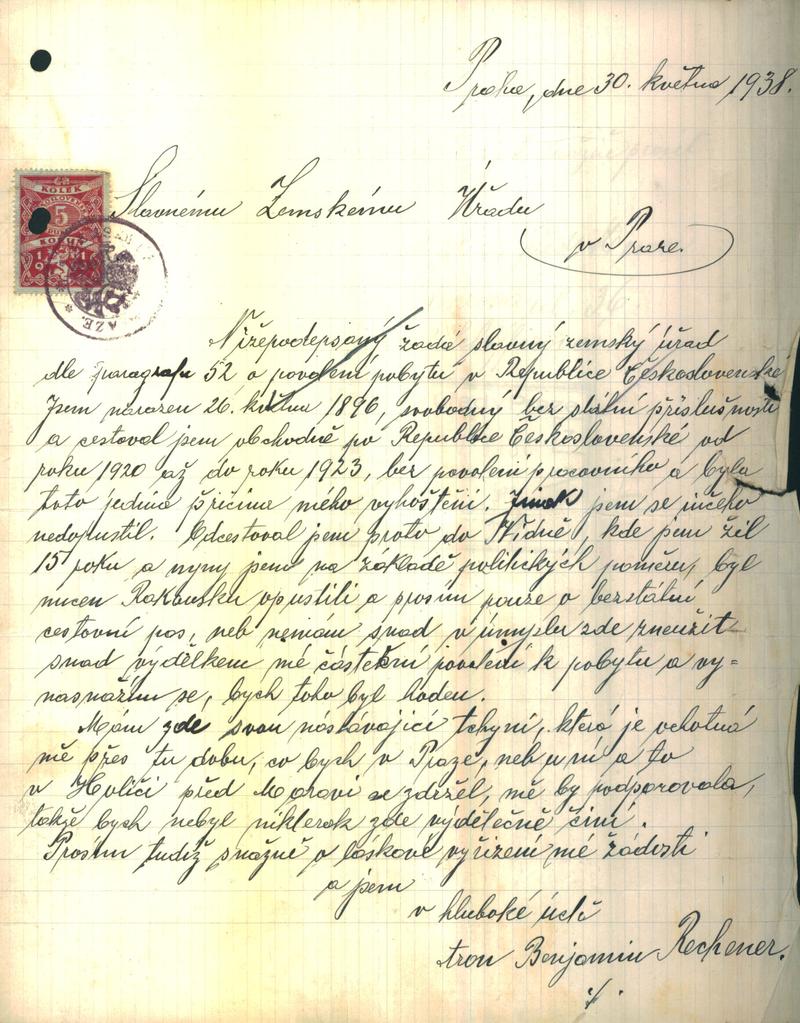 Praha, dne 30. května 1938.
KOLEK
5
KORUN
Slavnému Zemskému Úřadu
v Praze.
Nížepodepsaný žádá slavný zemský úřad
dle paragrafu 52 o povolení pobytu v Republice Československé
Jsem narozen 26. května 1896, svobodný bez státní příslušnosti
a cestoval jsem obchodně po Republice Československé od
roku 1920 až do roku 1923, bez povolení pracovního a byla
toto jediná příčina mého vyhoštění. Jinak jsem se ničeho
nedopustil. Odcestoval jsem proto do Vídně, kde jsem žil
15 roku a nyny jsem na základě politických poměru, byl
nucen Rakousku opustili a prosím pouze o bezstátní
cestovní pas, neb nemám snad v úmyslu zde zneužit
snad výdělkem, mé částeční povolení k pobytu a vy=
nasnažím se, bych toho byl hoden.
Mám zde svou nastávající tchyni, která je ochotná
mě přes tu dobu, co bych v Praze, neb u ní a to
v Holiči před Moravi se zdržel, mě by podporovala,
takže bych nebyl nikterak zde výdělečně činí.
Prosím tudíž snažně o laskavé vyřízení mé žádosti
a jsem
v hluboké úctě
Aron Benjamin Rechener.